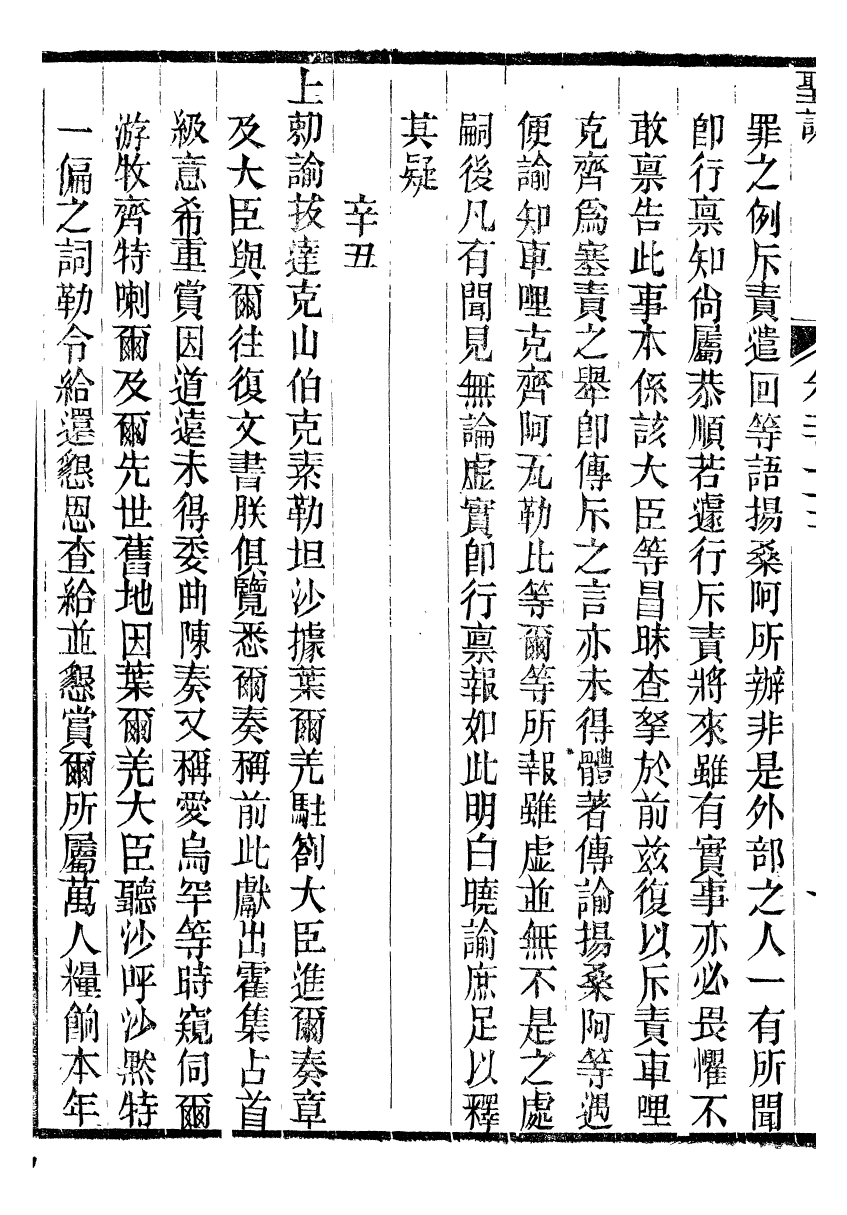 聖訓
罪之例斥責遣回等語揚桑阿所辦非是外部之人一有所聞
卽行稟知尙屬恭順若遽行斥責將來雖有實事亦必畏懼不
敢稟告此事本係該大臣等昌昧查拏於前兹復以斥責車哩
克齊爲塞責之舉卽傳斥之言亦未得體著傳諭揚桑阿等遇
便諭知車哩克齊阿瓦勒比等爾等所報雖虛並無不是之處
嗣後凡有聞見無論虛實卽行稟報如此明白曉諭庶足以釋
其疑
辛丑
上勅諭拔達克山伯克素勒坦沙據葉爾羌駐劄大臣進爾奏章
及大臣與爾往復文書朕俱覽悉爾奏稱前此獻出霍集占首
級意希重賞因道遠未得委曲陳奏又稱愛烏罕等時窺伺爾
游牧齊特喇爾及爾先世舊地因葉爾羌大臣聽沙呼沙默特
一偏之詞勒令給還懇恩查給並懇賞爾所屬萬人糧餉本年